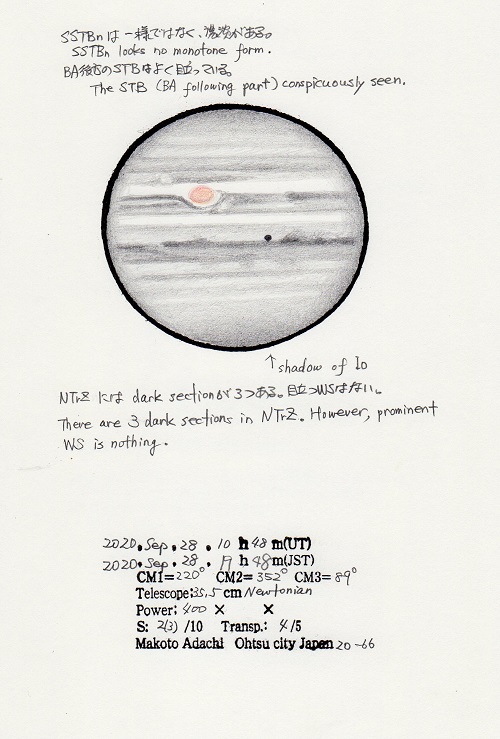 SSTBnは一様ではなく、濃淡がある。
SSTBn looks no monotone form.
BA後方のSTBはよく目立っている。
The STB (BA following part) conspicuously seen.
↑shadow of Io
NTrZ には dark sectionが3つある。目立つWSはない。
There are 3 dark sections in NTrZ. However, prominent
WS is nothing.
2020. Sep. 28. 10 h 48 m(UT)
2020. Sep. 28. 19 h 48 m(JST)
CM1=220° CM2=352° CM3=89°
Telescope:35.5 cm Newtonian
Power: 400 × ×
S: 2(3) /10 Transp.: 4 /5
Makoto Adachi Ohtsu city Japan 20-66